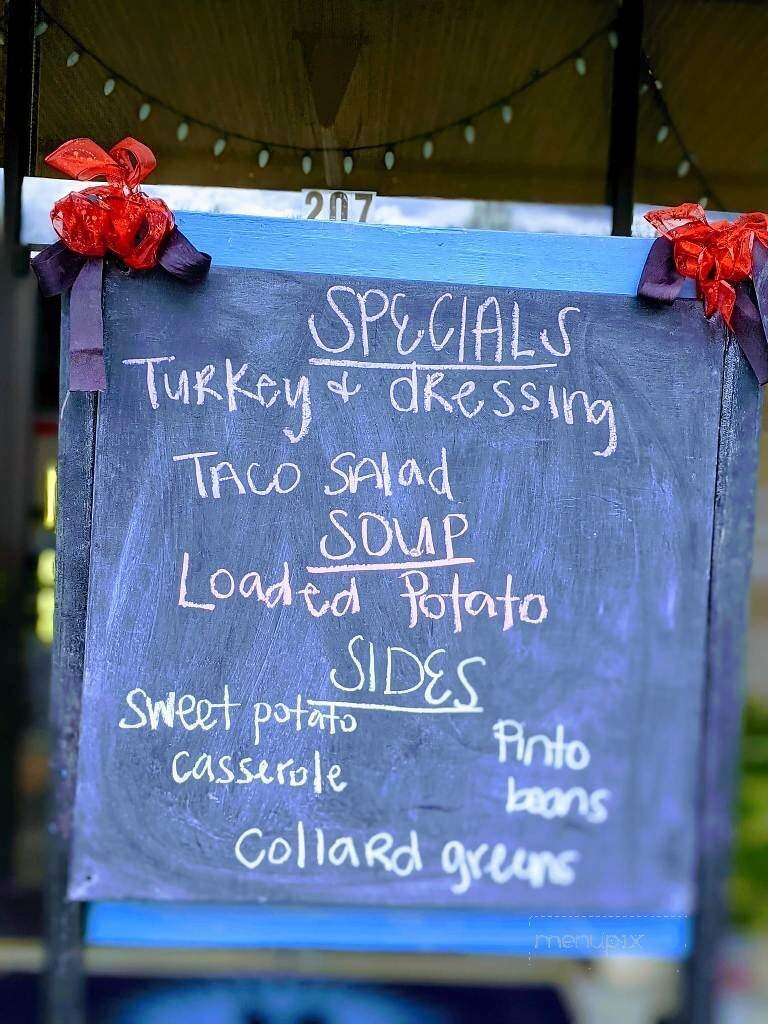 207
SPECIALS
Turkey & dressing
Taco Salad
SOUP
Loaded Potato
SIDES
Sweet potato
casserole
Pinto
beans
Collard greens
menupix